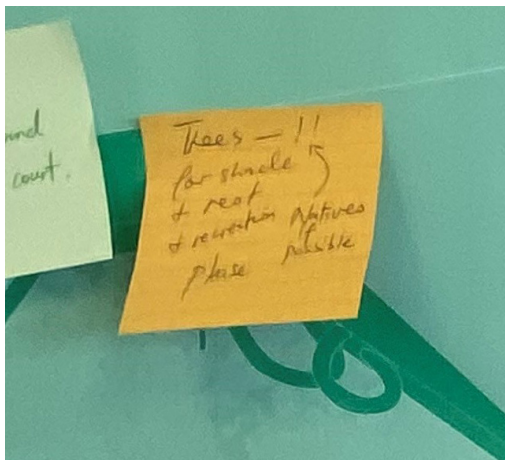 and
court.
Trees – !!
for shade
+ rest
+ recreation Natives
if
please possible